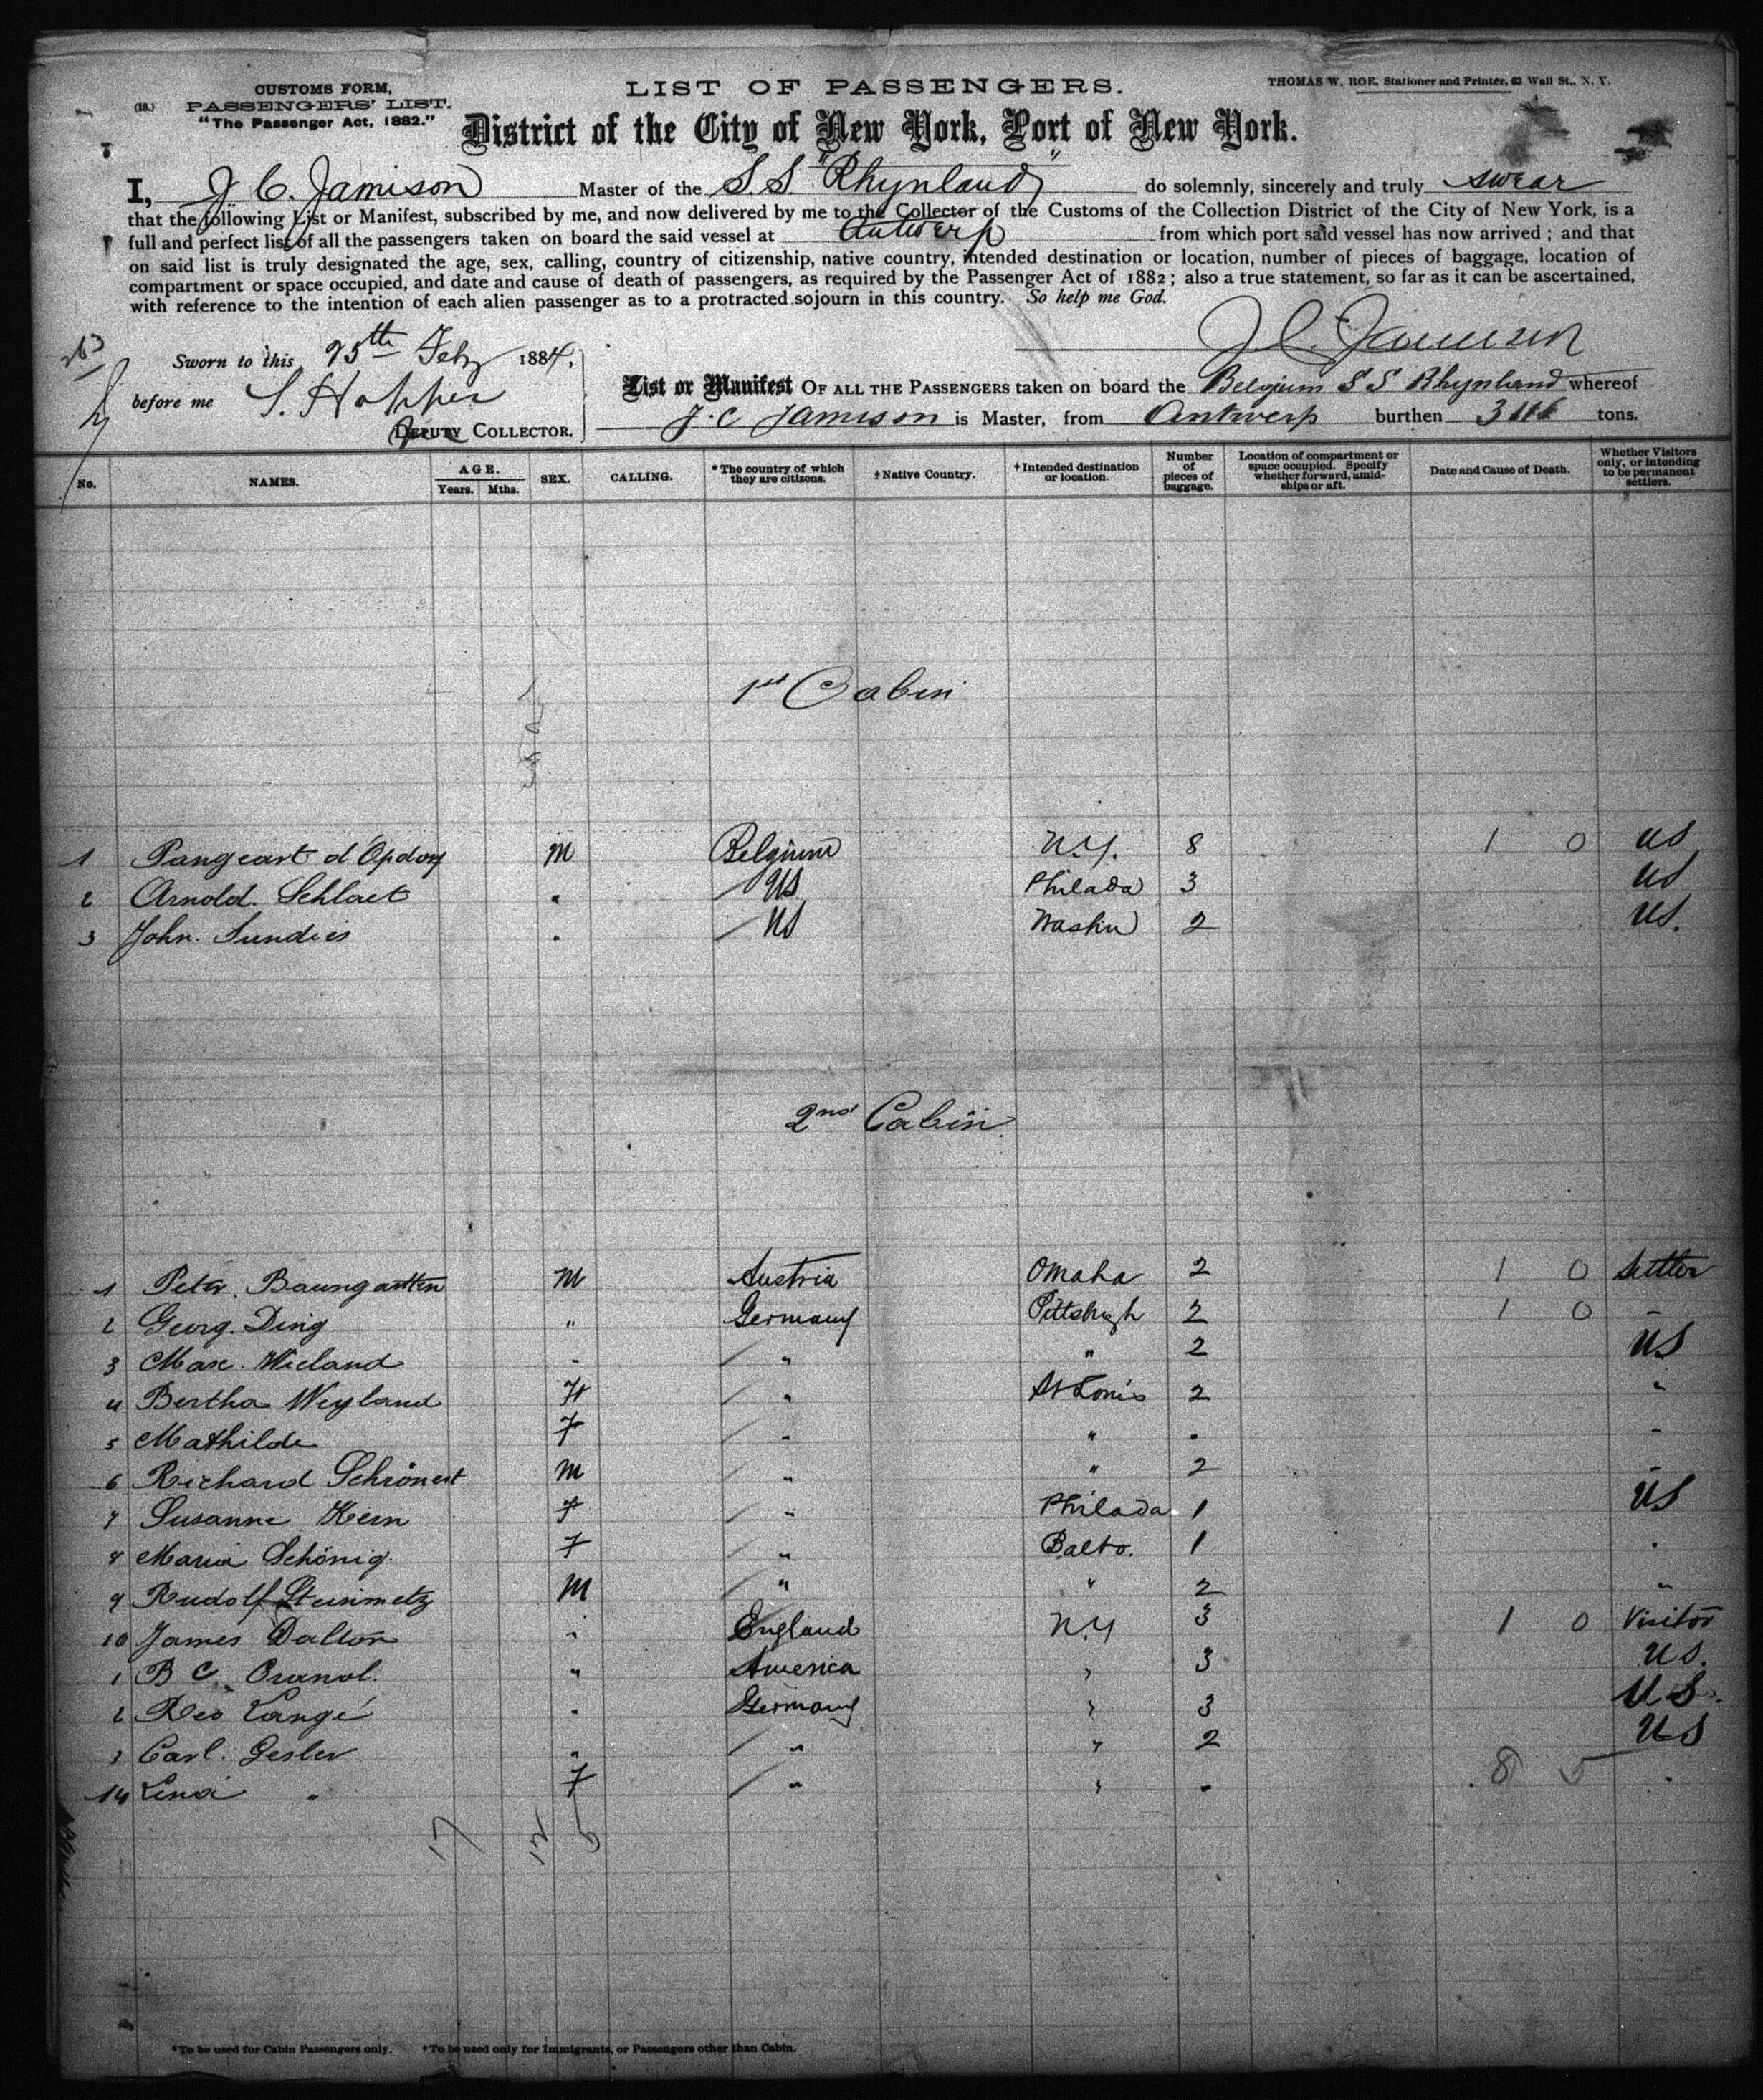 CUSTOMS FORM,
(18.) PASSENGERS' LIST.
"The Passenger Act, 1882."
LIST OF PASSENGERS.
THOMAS W. ROE, Stationer and Printer, 63 Wall St., N. Y.
District of the City of New York, Port of New York.
I, J. C. Jamison Master of the S S "Rhynland" do solemnly, sincerely and truly swear
that the following List or Manifest, subscribed by me, and now delivered by me to the Collector of the Customs of the Collection District of the City of New York, is a
full and perfect list of all the passengers taken on board the said vessel at Antwerp from which port said vessel has now arrived; and that
on said list is truly designated the age, sex, calling, country of citizenship, native country, intended destination or location, number of pieces of baggage, location of
compartment or space occupied, and date and cause of death of passengers, as required by the Passenger Act of 1882; also a true statement, so far as it can be ascertained,
with reference to the intention of each alien passenger as to a protracted sojourn in this country. So help me God.
J C Jamison
Sworn to this 25th Feby 1884,
before me S. Hopper
DEPUTY COLLECTOR.
List or Manifest OF ALL THE PASSENGERS taken on board the Belgium S S Rhynland whereof
J. C Jamison is Master, from Antwerp burthen tons.
No. NAMES. AGE. Years. Mths. SEX. CALLING. *The country of which they are citizens. †Native Country. †Intended destination or location. Number of pieces of baggage. Location of compartment or space occupied. Specify whether forward, amidships or aft. Date and Cause of Death. Whether Visitors only, or intending to be permanent settlers.
1st Cabin
1 Pangeart d Opdorp M Belgium N.Y. 8 1 0 US
2 Arnold. Schlaet " US Philada 3 US
3 John. Sundies " US Washn 2 US.
2nd Cabin
1 Peter. Baumgartten M Austria Omaha 2 1 0 Settler
2 Georg. Ding " Germany Pittsburgh 2 1 0 "
3 Max. Wieland " " " 2 US
4 Bertha Weyland F " St Louis 2 "
5 Mathilde F " " " "
6 Richard Schrönert M " " 2 "
7 Susanne Kern F " Philada 1 US
8 Maria Schönig. F " Balto. 1 "
9 Rudolf Steinmetz M " " 2 "
10 James Dalton " England N.Y 3 1 0 Visitor
1 B C " America " 3 US.
2 Lange " Germany " 3 US.
3 Carl. Gesler " " " 2 US
14 Lina " F " " " 8 5 "
17 12 5
*To be used for Cabin Passengers only. †To be used only for Immigrants, or Passengers other than Cabin.